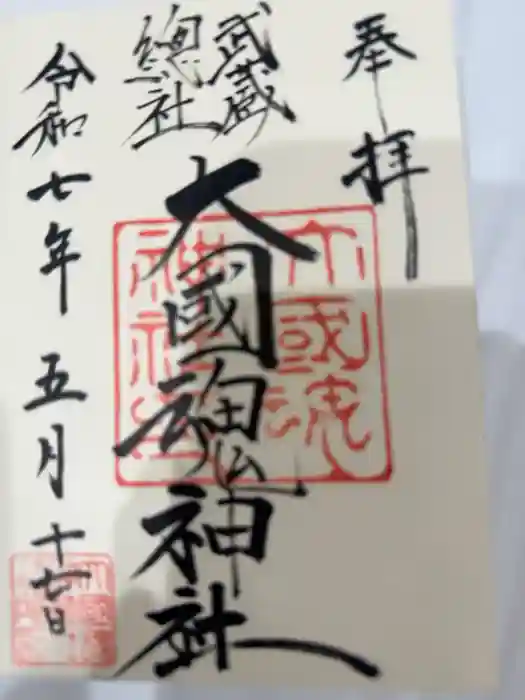 奉拝
武蔵
總社
大國魂神社
令和七年五月十七日